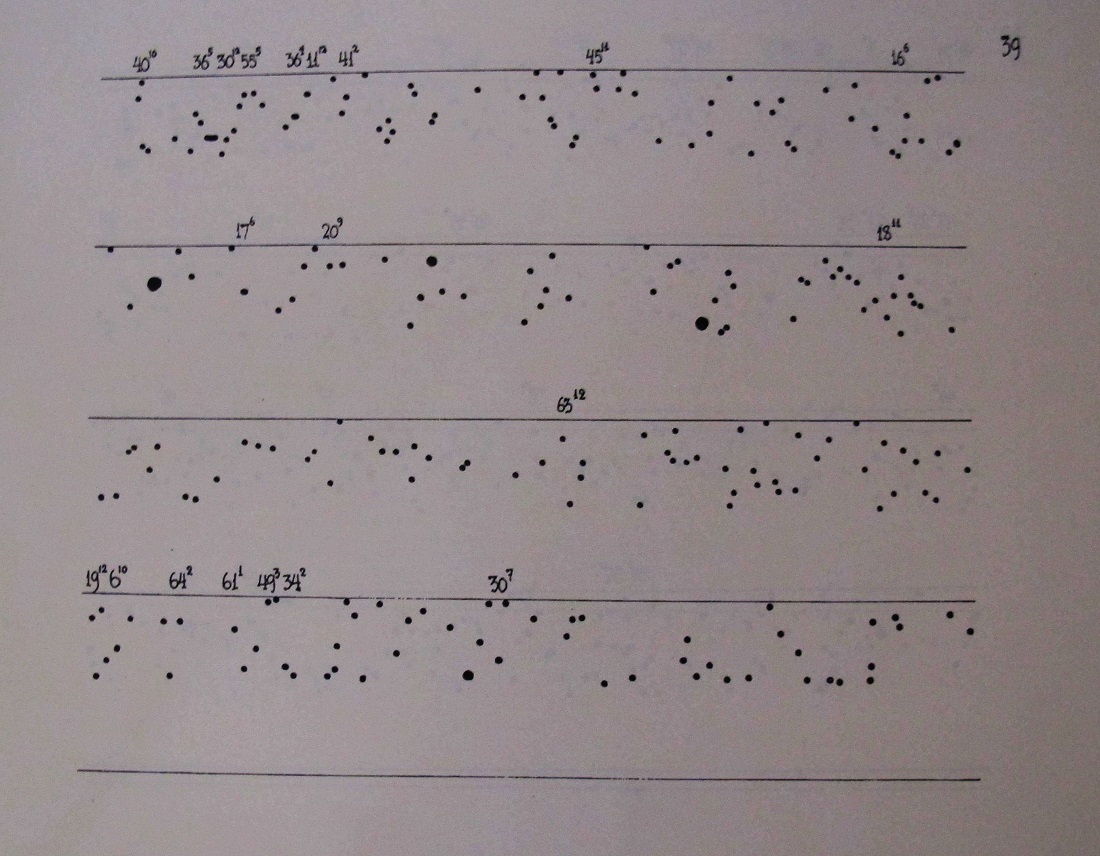 39
40¹⁰ 36⁵ 30¹² 55⁵ 36⁹ 11¹² 41² 45¹¹ 16⁶
17⁶ 20⁹ 18¹¹
63¹²
19¹² 6¹⁰ 64² 61¹ 49³ 34² 30⁷